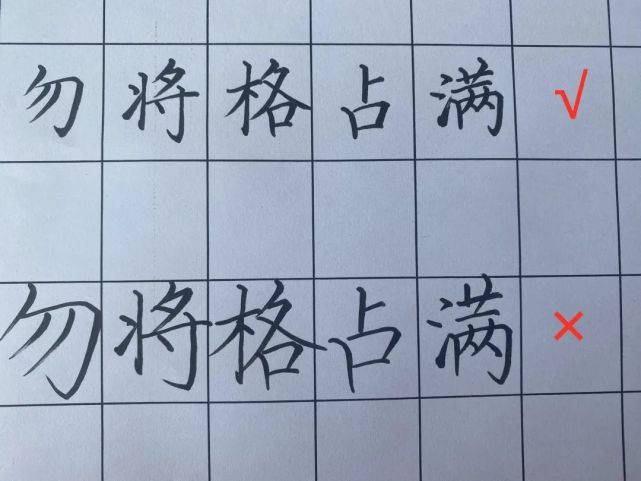 勿将格占满√
勿将格占满×